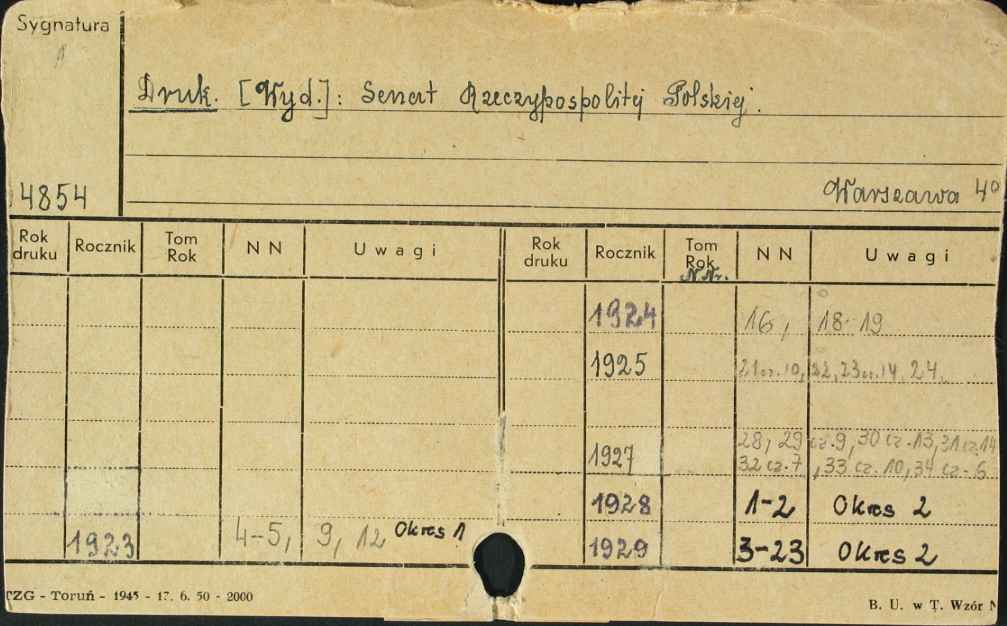 Sygnatura
Druk. [Wyd.]: Senat Rzeczypospolitej Polskiej.
4854
Warszawa 4°
Rok druku Rocznik Tom Rok NN Uwagi Rok druku Rocznik Tom Rok NN Uwagi
N.Nr.
1924 16, 18-19
1925 21 cz.10, 22, 23 cz.14, 24.
28, 29 cz.9, 30 cz.13, 31 cz.14
1927 32 cz.7, 33 cz.10, 34 cz-6
1928 1-2 Okres 2
1923 4-5, 9, 12 Okres 1 1929 3-23 Okres 2
TZG - Toruń - 1945 - 17. 6. 50 - 2000
B. U. w T. Wzór N